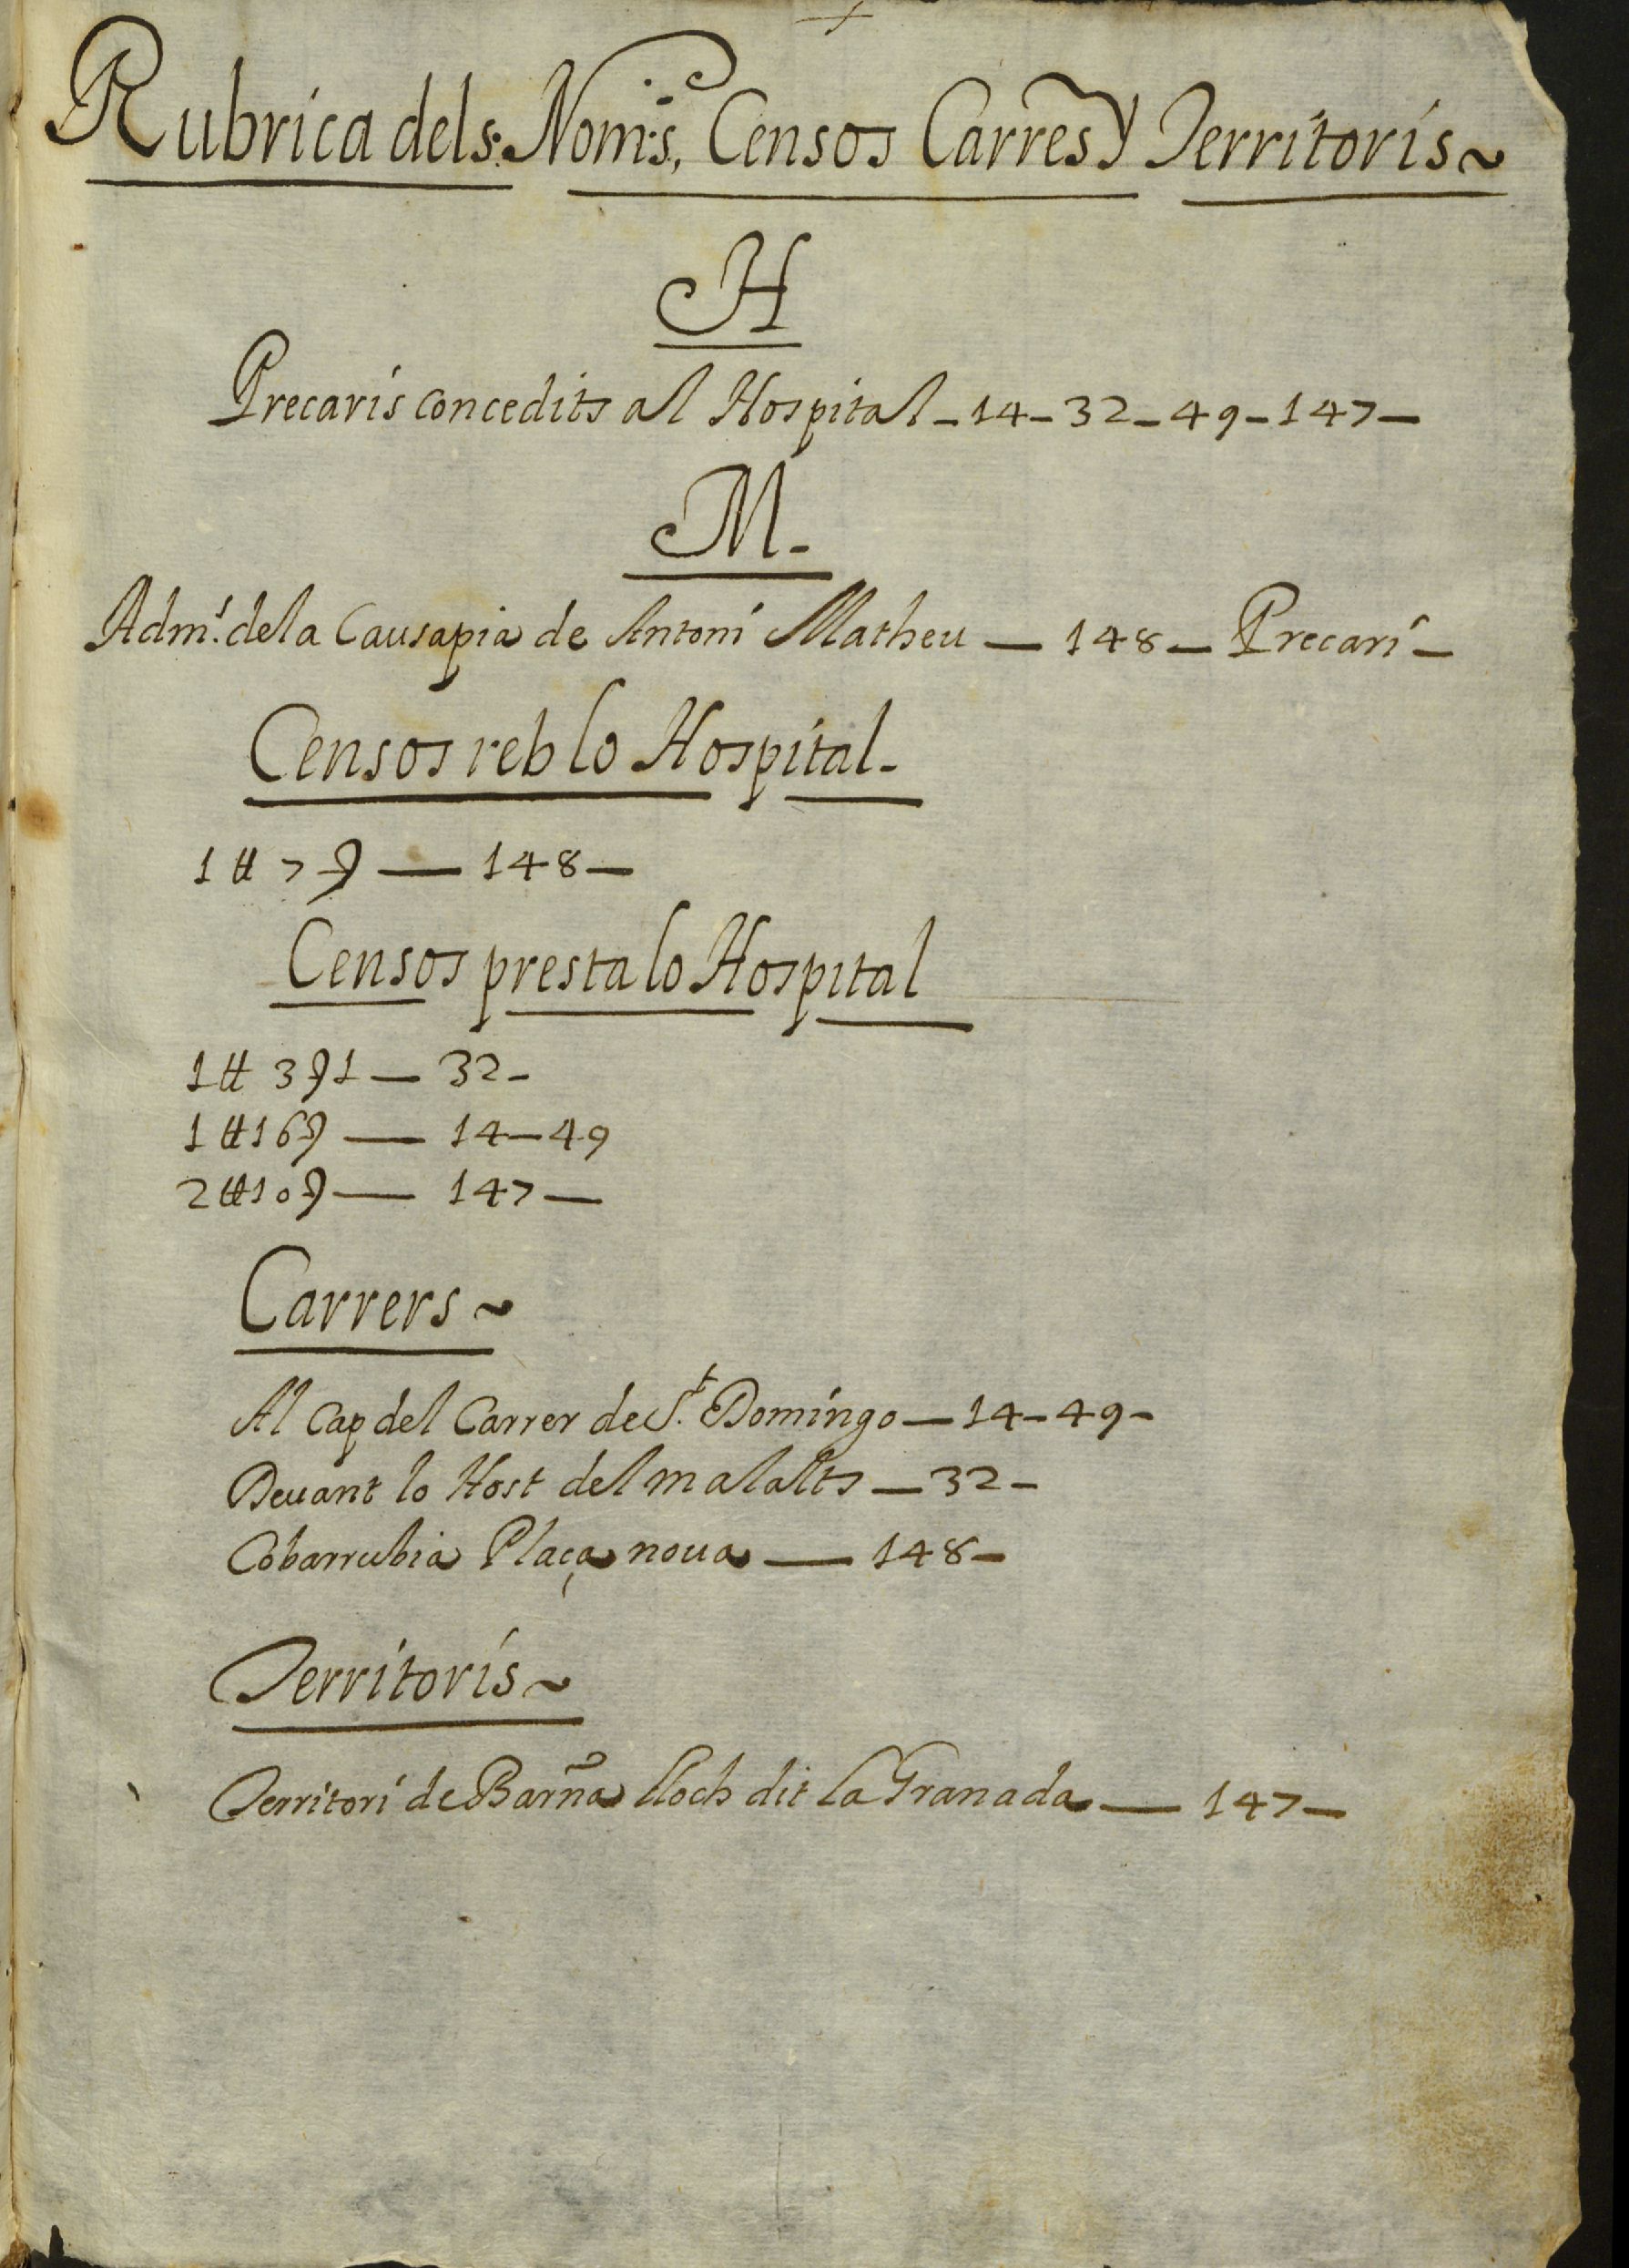 Rubrica dels Noms, Censos Carrēs y Territoris~
H
Precaris concedits al Hospital - 14 - 32 - 49 - 147 -
M.
Adm.s dela Causapia de Antoni Matheu — 148 — Precari -
Censos reb lo Hospital -
1 ₶ 7 ẟ — 148 —
Censos presta lo Hospital
1 ₶ 3 ẟ 1 — 32 -
1 ₶ 16 ẟ — 14 — 49
2 ₶ 10 ẟ — 147 —
Carrers ~
Al Cap del Carrer de S.t Domingo — 14 - 49 -
Devant lo Host del malalts — 32 -
Cobarrubia Plaça nova — 148 -
Territoris ~
Territori de Barña lloch dit la Granada — 147 -